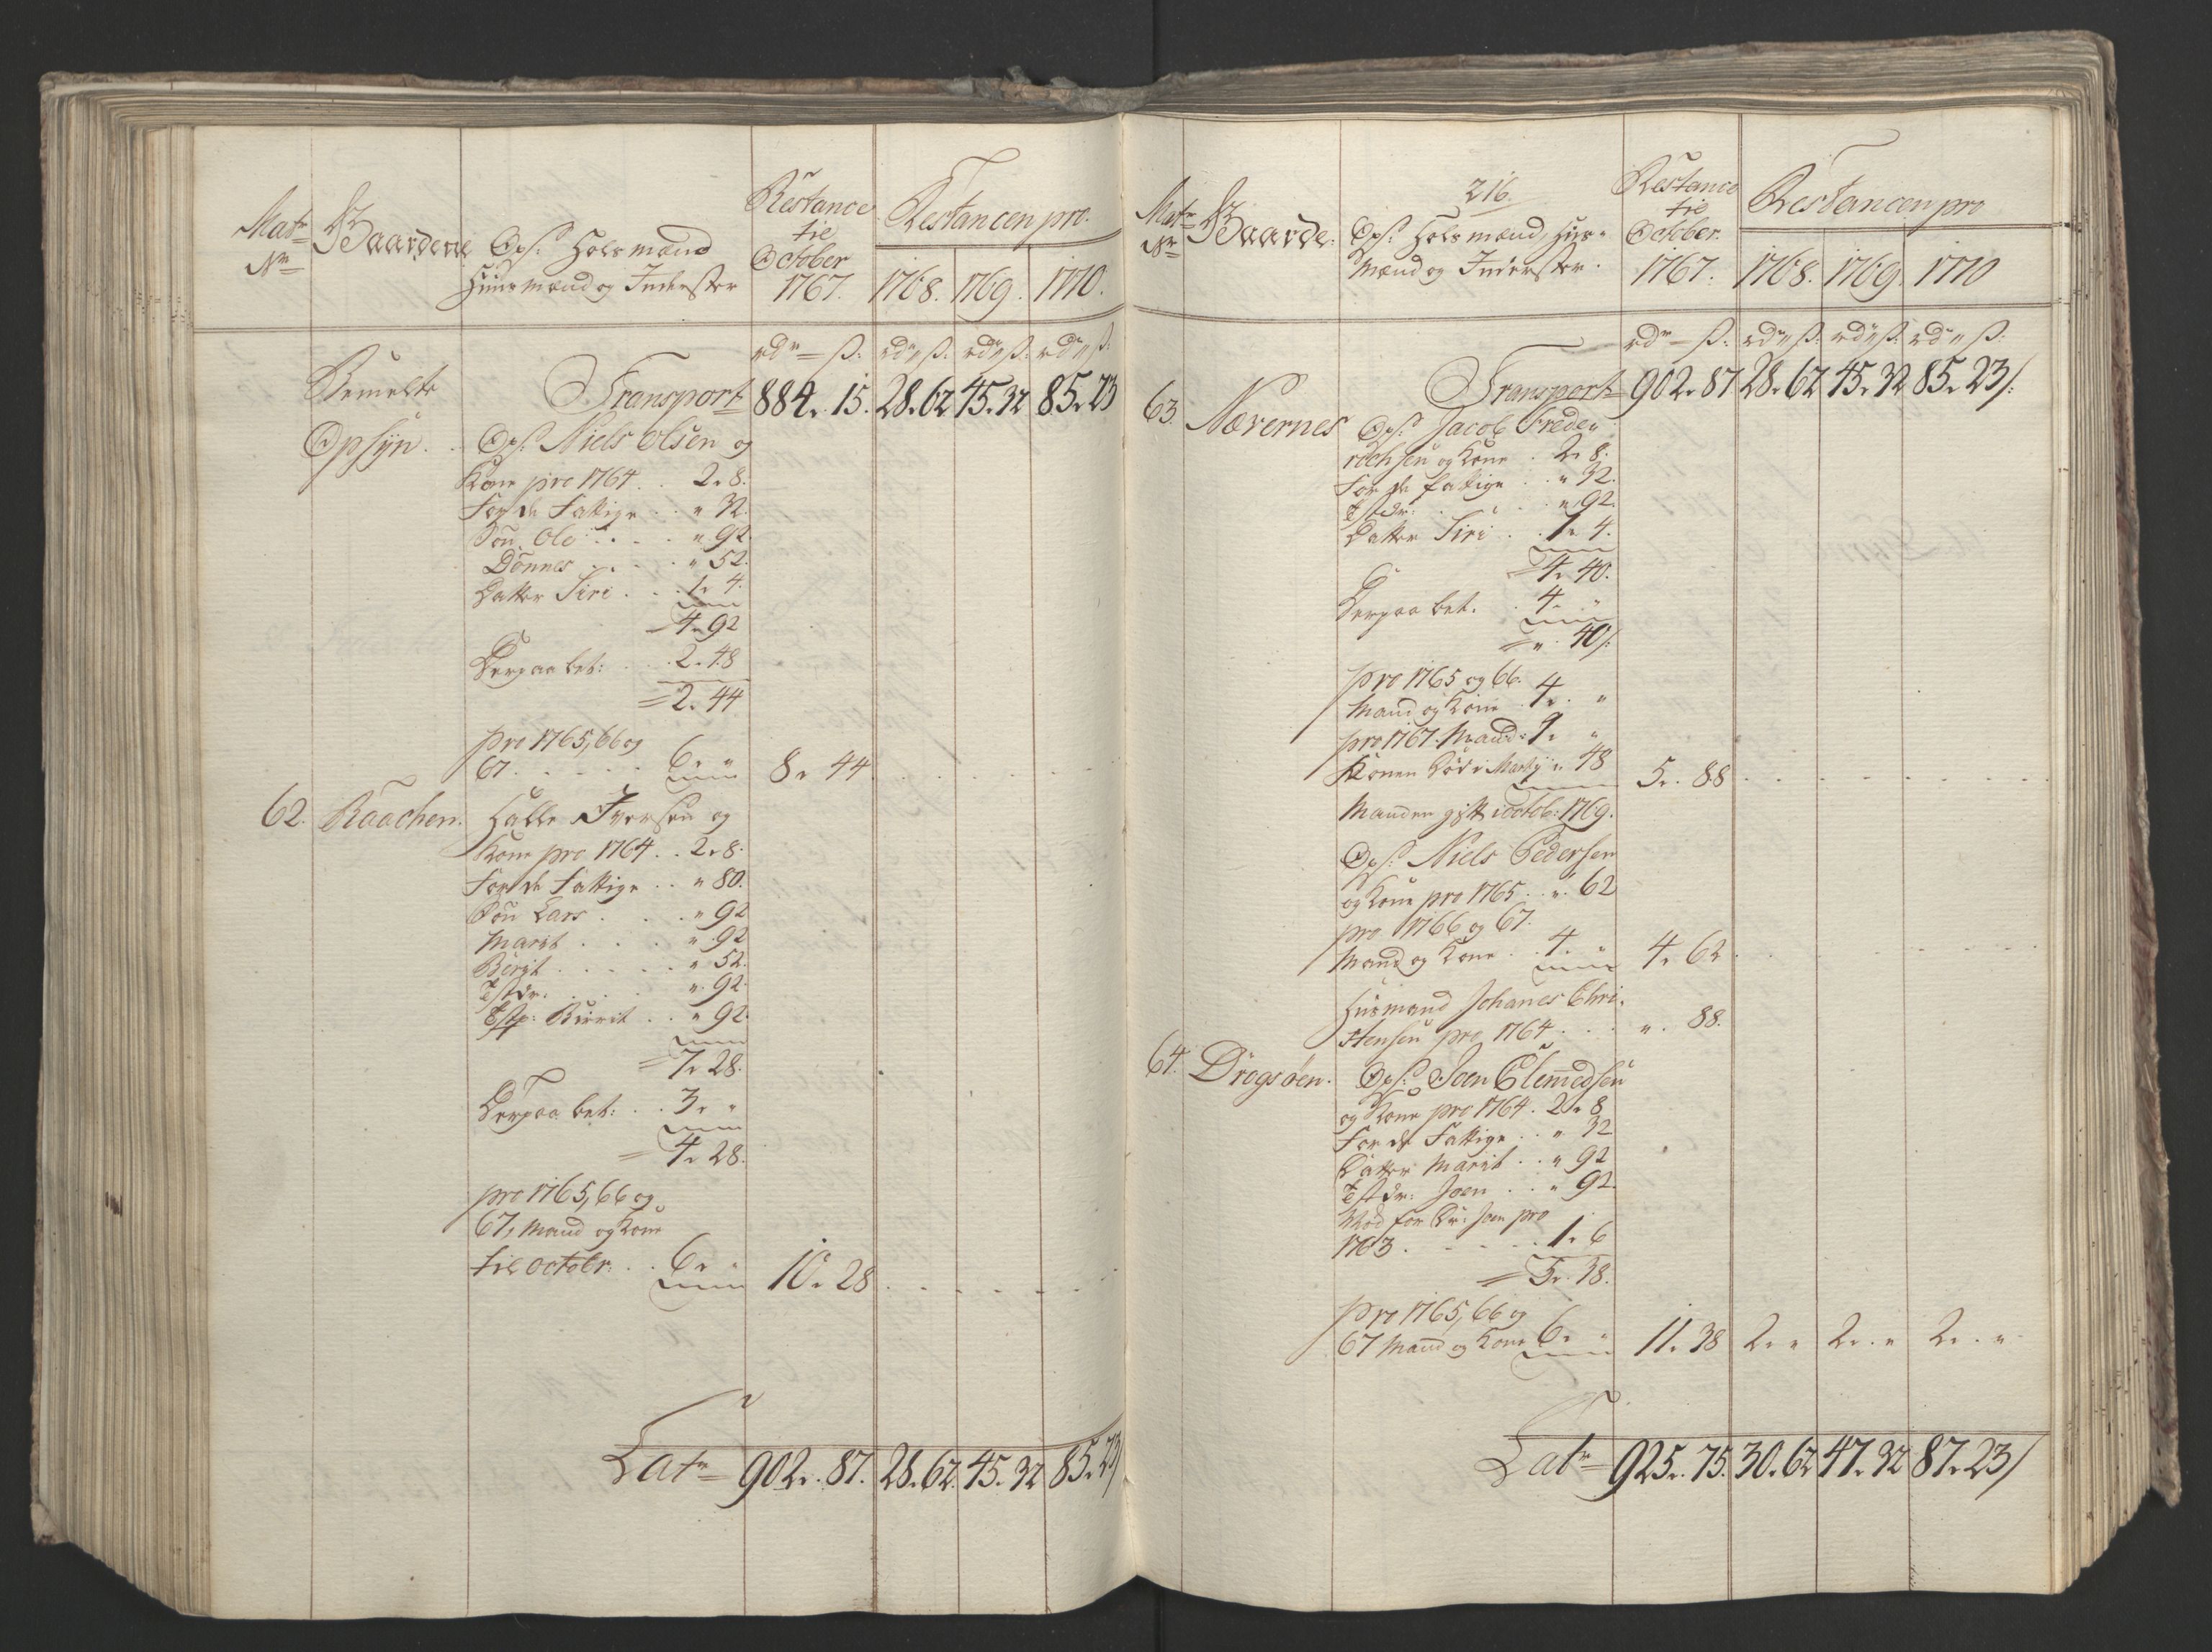 Matr
Nr
Gaardene
Ops: Holsmænd
Huusmænd og Inderster
Restance
til
October
1767.
Restancen pro.
1768. 1769. 1770.
rdr ß: rdr ß: rdr ß: rdr ß:
Bemelte Transport 884. 15. 28. 62 45. 32 85. 23
Opsÿn. Ops: Niels Olsen og
Kone pro 1764 . . 2. 8.
For de Fattige . . " 32.
Søn Ole . . . . " 92.
Dønnes . . . . " 52.
Datter Siri . . . 1. 4.
= 4. 92
Derpaa bet: . . . 2. 48
= 2. 44
pro 1765, 66 og
67. . . . . . 6. " 8. 44
62. Raachen. Halle Iversen og
Kone pro 1764 . . 2. 8.
For de Fattige . . " 80.
Søn Lars . . . . " 92
Marit . . . . " 92
Berit . . . . . " 52.
Tstdr: . . . . " 92.
Tstp: Birrit . . " 92.
= 7. 28.
Derpaa bet: . . 3. "
= 4. 28.
pro 1765, 66 og
67, Mand og Kone
til octobr: . . 6. " 10. 28
Latr 902. 87. 28. 62. 45. 32 85. 23/
Matr
Nr
Gaarde.
216.
Ops: Holsmænd, Hus-
mænd og Inderster.
Restance
til
October.
1767.
Restancen pro
1768. 1769. 1770
rdr ß: rdr ß: rdr ß: rdr ß:
Transport 902. 87 28. 62 45. 32 85. 23/.
63. Nævernes Ops: Jacob Frede-
rechsen og Kone . 2. 8.
For de fattige . . " 32.
Tstdr: . . . . " 92.
Datter Siri . . 1. 4.
= 4. 40.
Derpaa bet. . 4. "
= ". 40/.
pro 1765 og 66.
Mand og Kone 4. "
pro 1767. Mand: 1. "
Konen død i Martÿ ". 48 5. 88
Manden gift i octob: 1769.
Ops: Niels Pedersen
og Kone pro 1765 . ". 62
pro 1766 og 67.
Mand og Kone . 4. " 4. 62
Husmand Johanes Chri-
stensen pro 1764 . . . ". 88.
64. Drogsøen. Ops: Joen Clemedsen
og Kone pro 1764. 2. 8
For de Fattige . . " 32
Datter Marit . . " 92
Tstdr: Joen . . " 92.
Mod for Dr: Joen pro
1763 . . . . . 1. 6
= 5. 38.
pro 1765, 66 og
67 Mand og Kone 6. " 11. 38 2. " 2. " 2. "
Latr 925. 75. 30. 62 47. 32 87. 23/